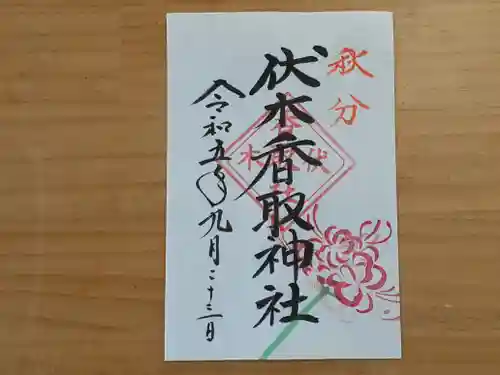 秋分
伏木香取神社
令和五年九月二十三日